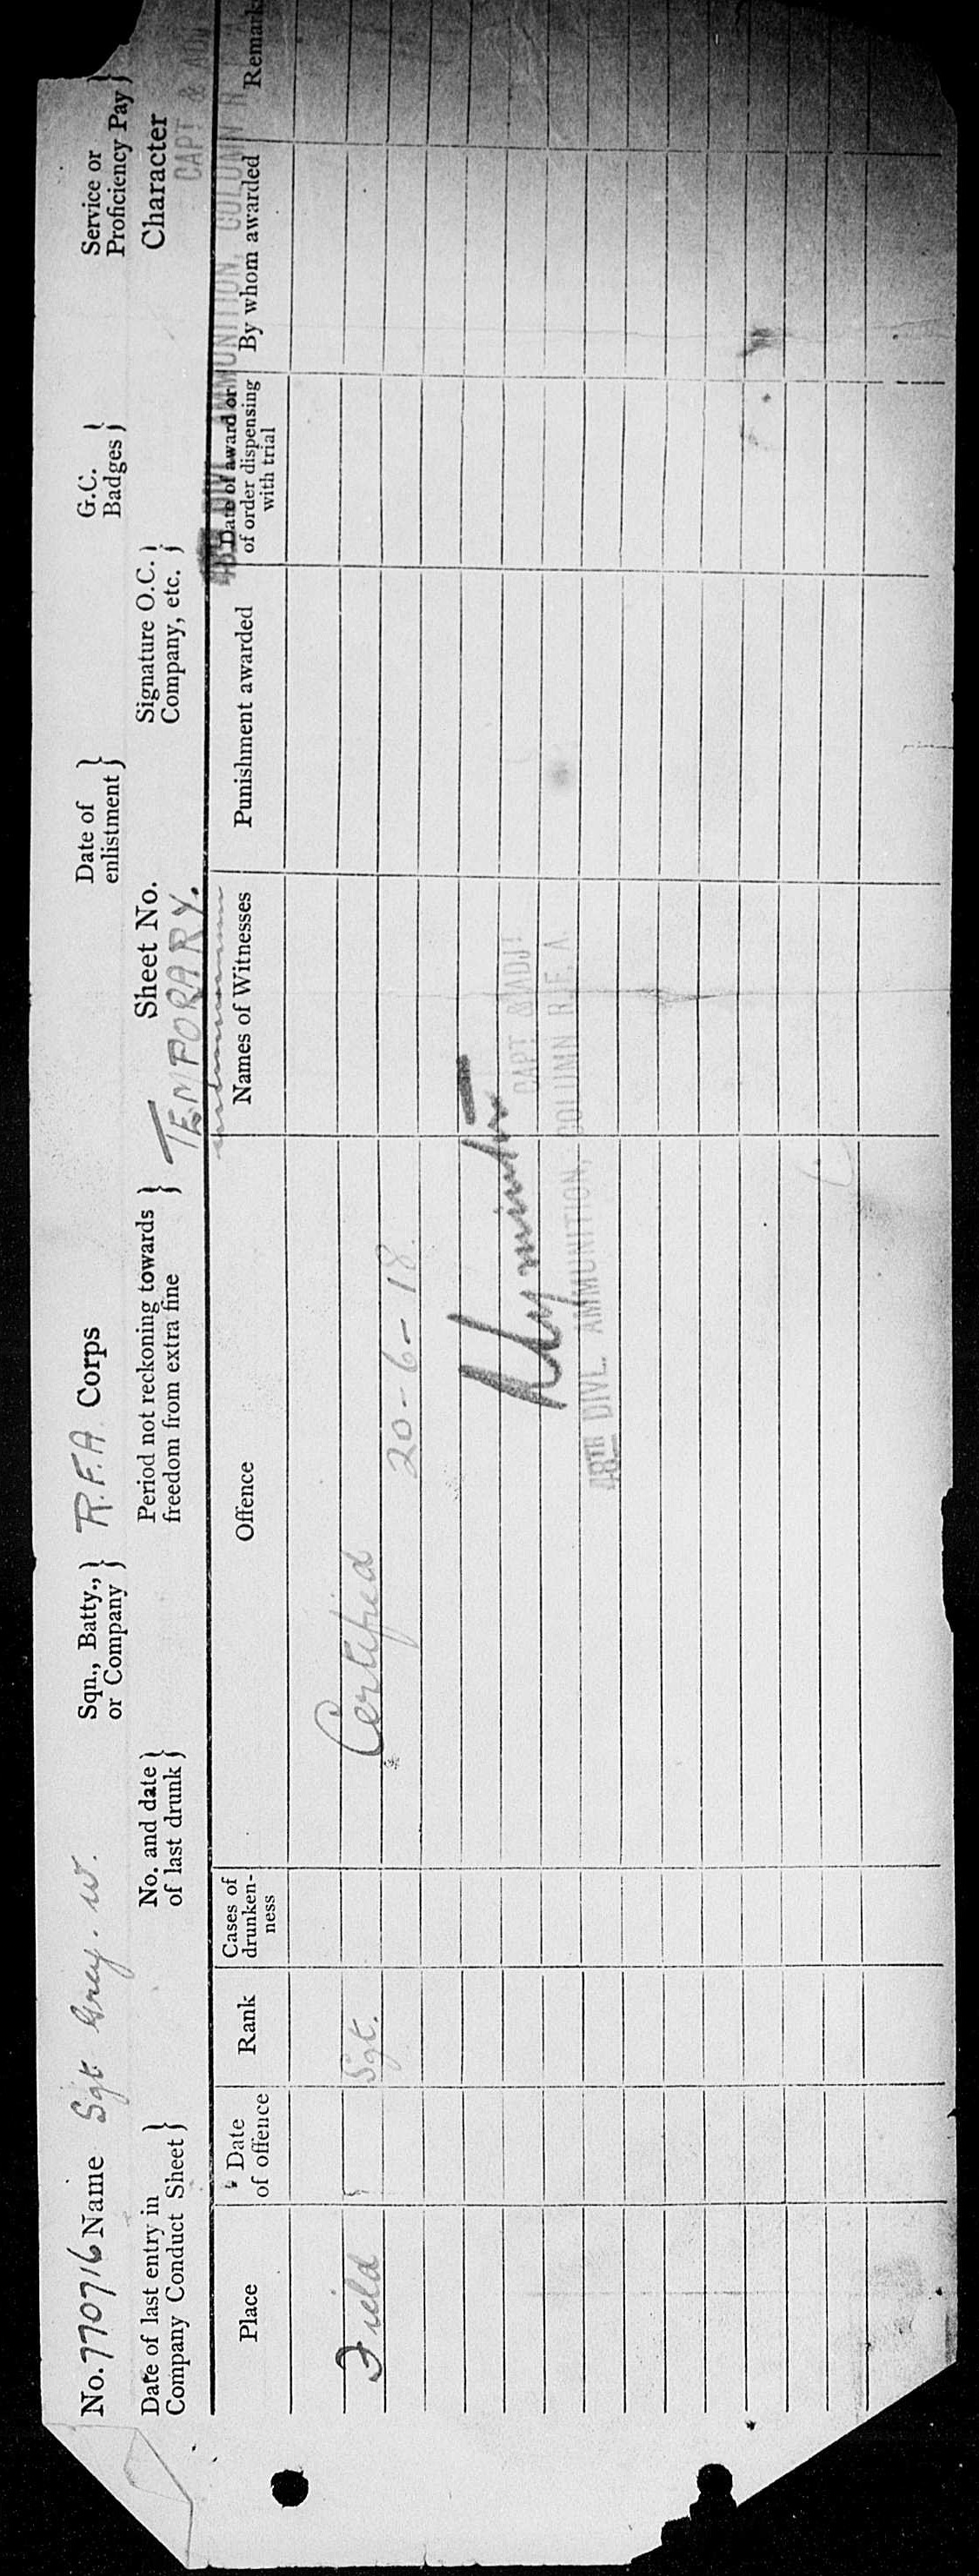 No. 770716 Name Sgt Grey. W. Sqn., Batty., or Company } R.F.A. Corps Date of enlistment } G.C. Badges } Service or Proficiency Pay }
Date of last entry in Company Conduct Sheet } No. and date of last drunk } Period not reckoning towards freedom from extra fine } Sheet No. Signature O.C. Company, etc. } Character
TEMPORARY.
CAPT & ADJ
48TH DIVL. AMMUNITION, COLUMN R
Place Date of offence Rank Cases of drunken-ness Offence Names of Witnesses Punishment awarded Date of award or of order dispensing with trial By whom awarded Remark
Field Sgt. Certified
20-6-18
CAPT & ADJT
48TH DIVL. AMMUNITION, COLUMN R.F.A.